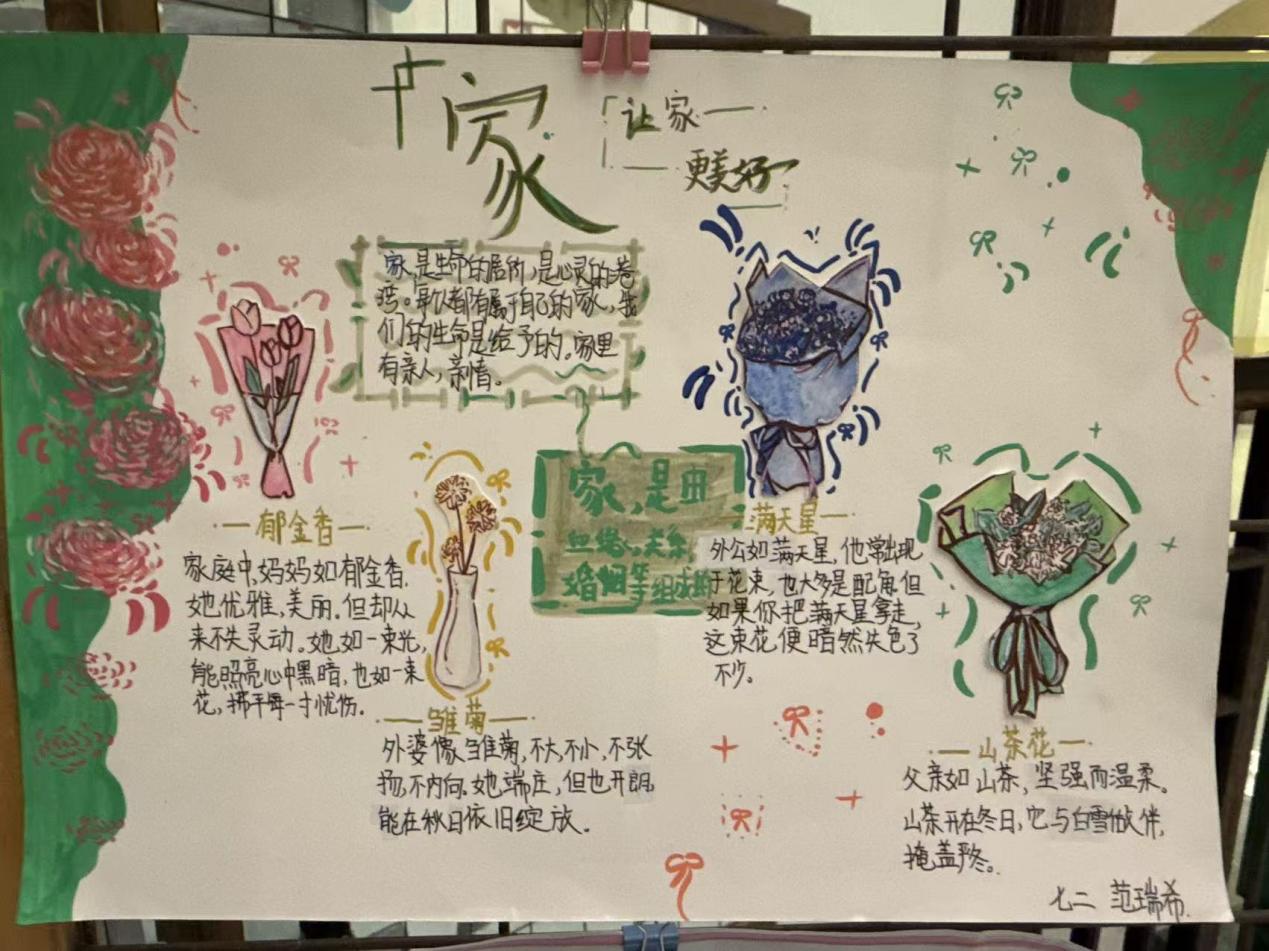 家
让家
更美好
家,是生命的居所,是心灵的港
湾。每个人都有属于自己的家,我
们的生命是给予的。家里
有亲人,亲情。
家,是由
血缘、关系,
婚姻等组成的
郁金香
家庭中,妈妈如郁金香,
她优雅,美丽。但却从
来不失灵动。她如一束光,
能照亮心中黑暗,也如一束
花,拂平每一寸忧伤。
雏菊
外婆像雏菊,不大,不小,不张
扬,不内向。她端庄,但也开朗,
能在秋日依旧绽放。
满天星
外公如满天星,他常出现
于花束,也大多是配角,但
如果你把满天星拿走,
这束花便暗然失色了
不少。
山茶花
父亲如山茶,坚强而温柔。
山茶开在冬日,它与白雪做伴,
掩盖严冬。
七二 范瑞希